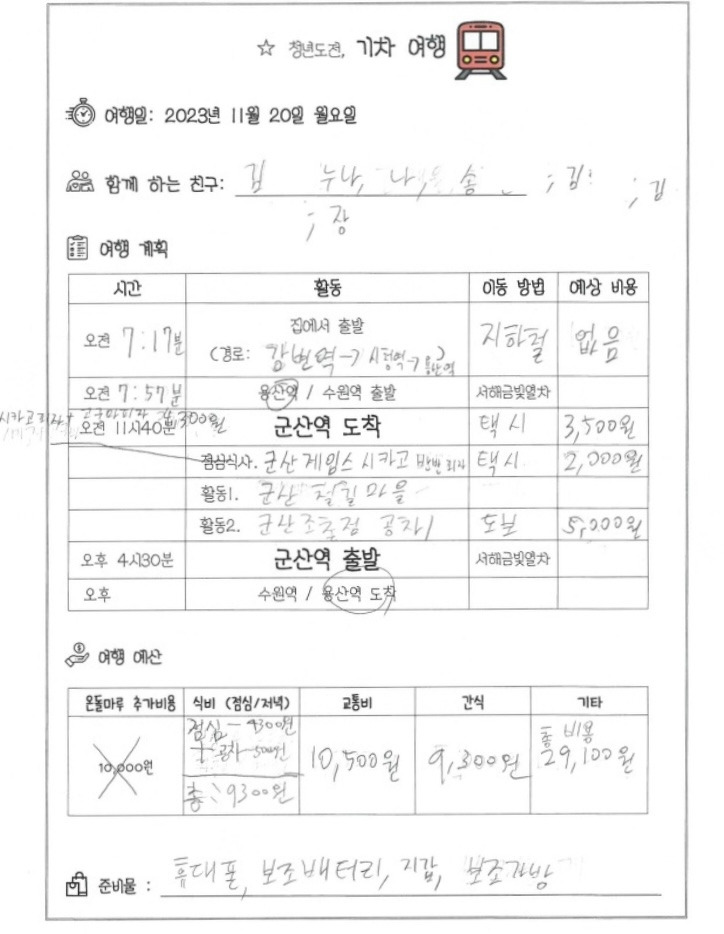 ☆ 청년도전, 기차 여행
여행일: 2023년 11월 20일 월요일
함께 하는 친구: 김 누나, 나, 송 ; 김 ; 김
; 장
여행 계획
시간 활동 이동 방법 예상 비용
오전 7:17분 집에서 출발 지하철 없음
(경로: 강변역→ 시청역→ 용산역)
오전 7:57분 용산역 / 수원역 출발 서해금빛열차
시카고피자+ 고구마피자 4,300원
오전 11시40분 군산역 도착 택시 3,500원
점심식사. 군산 제임스 시카고 반반피자 택시 2,000원
활동1. 군산 철길마을
활동2. 군산조촌점 공차 도보 5,000원
오후 4시30분 군산역 출발 서해금빛열차
오후 수원역 / 용산역 도착
여행 예산
온돌마루 추가비용 식비 (점심/저녁) 교통비 간식 기타
10,000원
점심 - 4300원
공차 - 5000원
총: 9300원
10,500원 9,300원
총 비용
29,100원
준비물 : 휴대폰, 보조배터리, 지갑, 보조가방